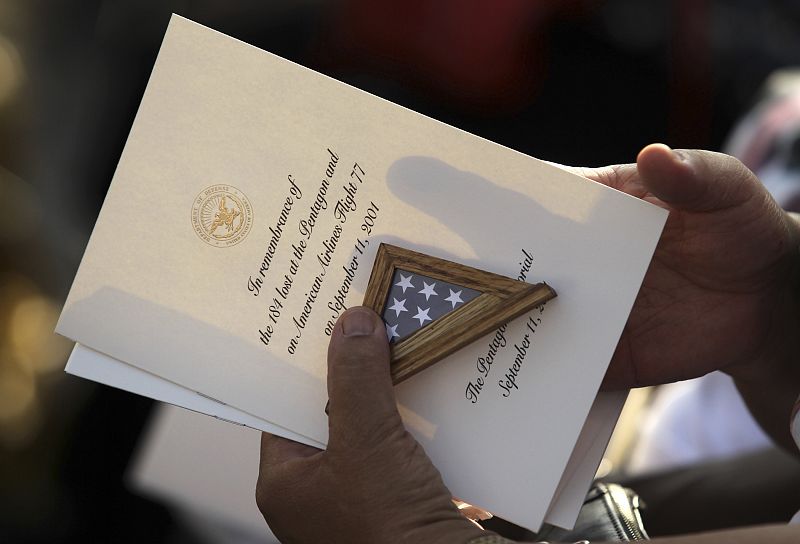 DEPARTMENT OF DEFENSE
In remembrance of
the 184 lost at the Pentagon and
on American Airlines Flight 77
on September 11, 2001
The Pentagon
September 11,